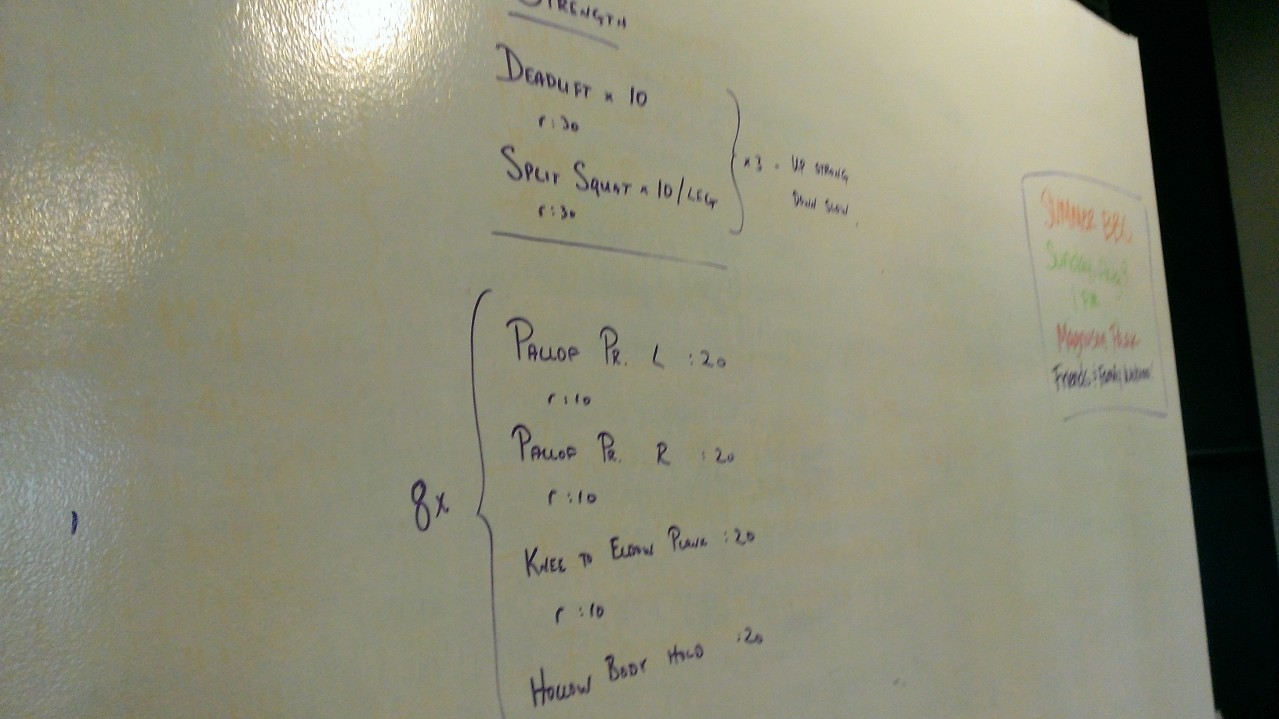 STRENGTH
DEADLIFT x 10
r:30
SPLIT SQUAT x 10/LEG
r:30
x3 - UP STRONG
DOWN SLOW
8x
PALLOF PR. L :20
r:10
PALLOF PR. R :20
r:10
KNEE TO ELBOW PLANK :20
r:10
HOLLOW BODY HOLD :20
SUMMER BBQ
Sunday,
1 PM
Magnuson Park
Friends & Family